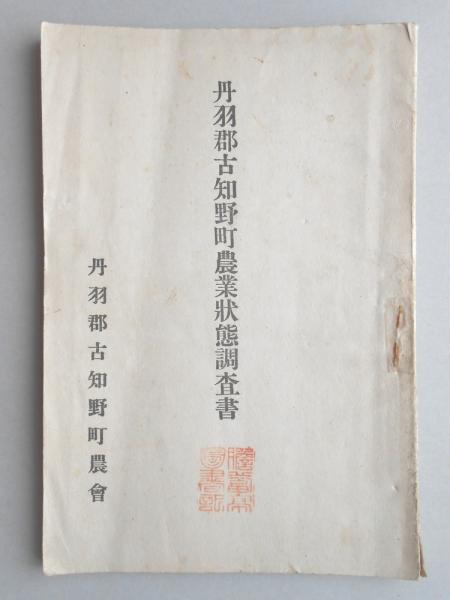 丹羽郡古知野町農業狀態調査書
丹羽郡古知野町農會